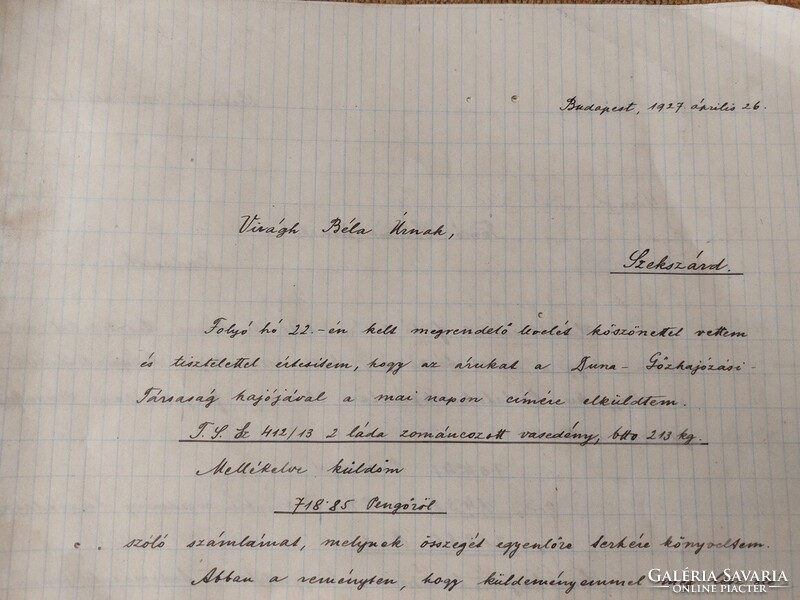 Budapest, 1927. április 26.
Virágh Béla Úrnak,
Szekszárd.
Folyó hó 22.-én kelt megrendelő levelét köszönettel vettem
és tisztelettel értesitem, hogy az árukat a Duna-Gőzhajózási-
Társaság hajójával a mai napon címére elküldtem.
T. S. Sz 412/13 2 láda zománcozott vasedény, btto 213 kg.
Mellékelve küldöm
718.85 Pengőről
szóló számlámat, melynek összegét egyenlőre terhére könyveltem.
Abban a reményben, hogy küldeményemmel
GALÉRIA SAVARIA
ONLINE PIACTÉR